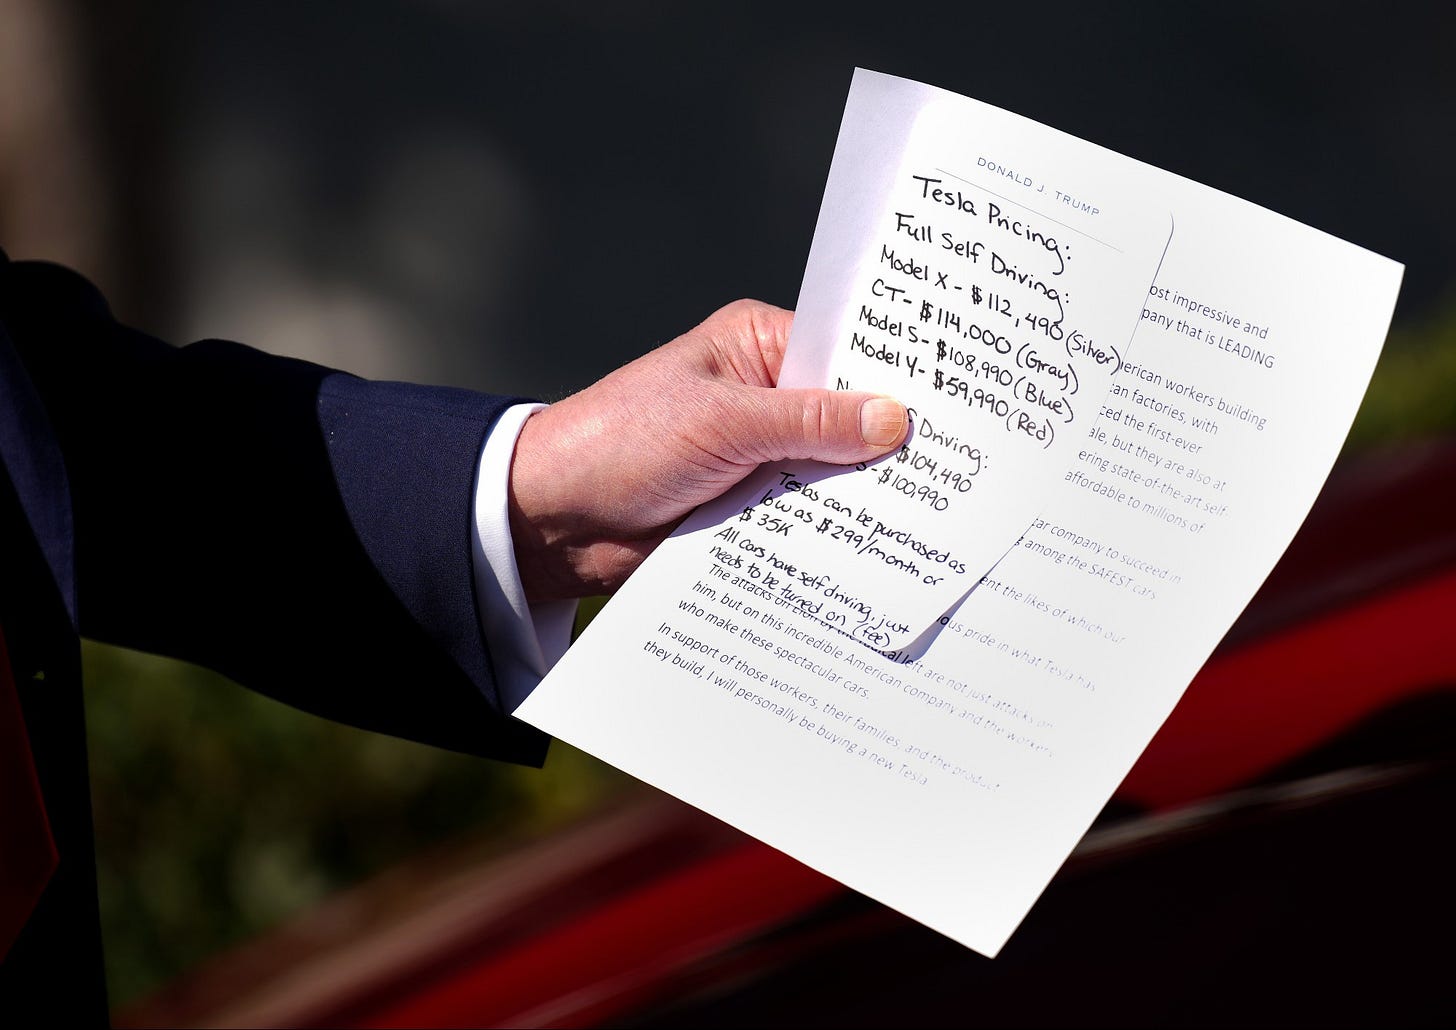 DONALD J. TRUMP
Tesla Pricing:
Full Self Driving:
Model X - $112,490 (Silver)
CT - $114,000 (Gray)
Model S - $108,990 (Blue)
Model Y - $59,990 (Red)
Driving:
$104,490
S - $100,990
Teslas can be purchased as
low as $299/month or
$35K
All cars have self driving, just
needs to be turned on (fee)
ost impressive and
pany that is LEADING
erican workers building
an factories, with
ced the first-ever
ale, but they are also at
ering state-of-the-art self-
affordable to millions of
car company to succeed in
among the SAFEST cars
ent the likes of which our
ous pride in what Tesla has
The attacks on Elon by the radical left are not just attacks on
him, but on this incredible American company and the workers
who make these spectacular cars.
In support of those workers, their families, and the product
they build, I will personally be buying a new Tesla.